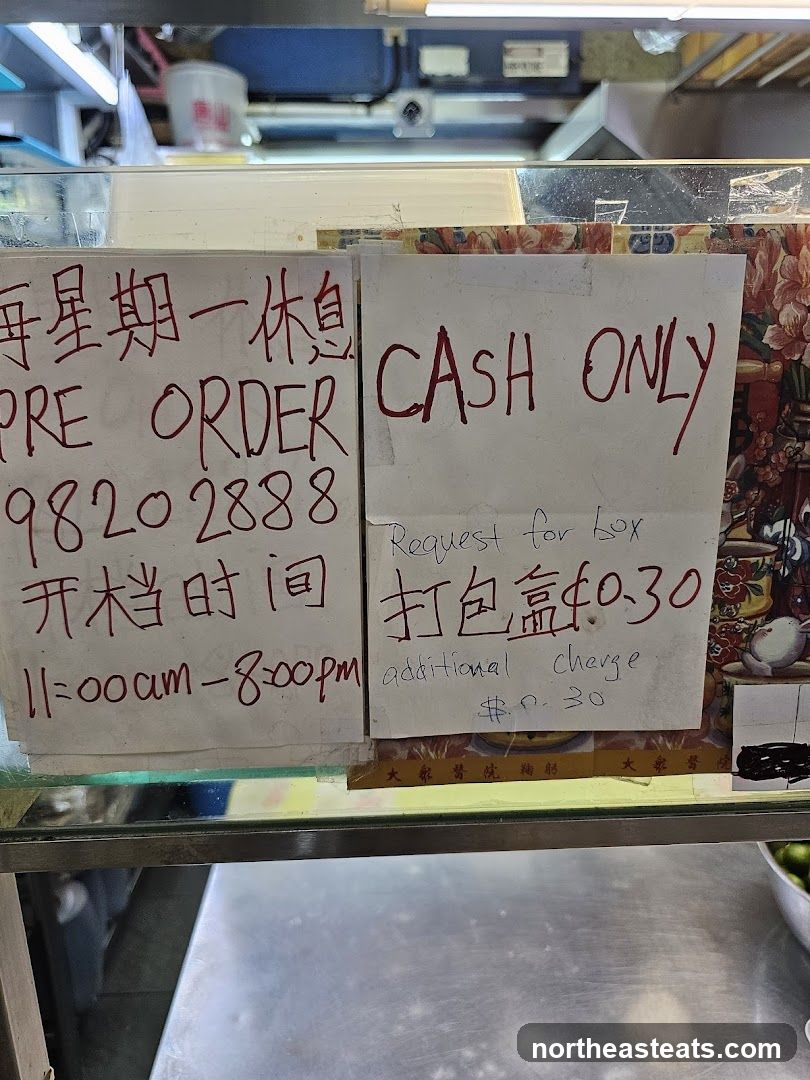 每星期一休息
PRE ORDER
98202888
开档时间
11:00am-8:00pm
CASH ONLY
Request for box
打包盒$0.30
additional charge
$0.30
大眾醫院 鞠躬
大眾醫院
northeasteats.com